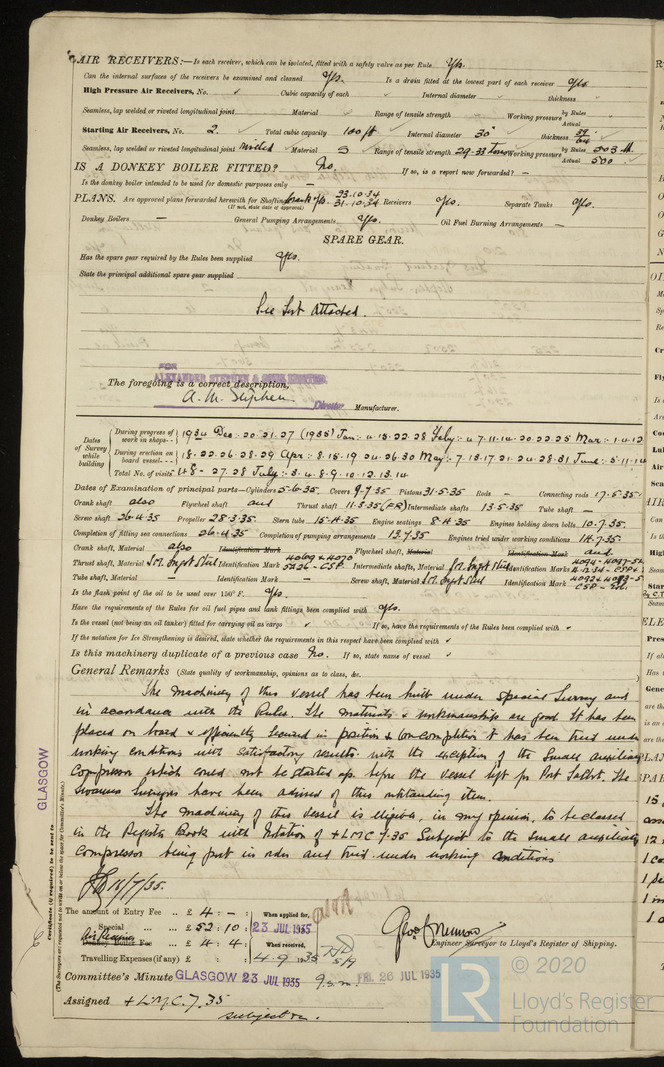 AIR RECEIVERS:—Is each receiver, which can be isolated, fitted with a safety valve as per Rule Yes.
Can the internal surfaces of the receivers be examined and cleaned Yes. Is a drain fitted at the lowest part of each receiver Yes
High Pressure Air Receivers, No. ✓ Cubic capacity of each ✓ Internal diameter ✓ thickness ✓
Seamless, lap welded or riveted longitudinal joint ✓ Material ✓ Range of tensile strength ✓ Working pressure by Rules Actual
Starting Air Receivers, No. 2. Total cubic capacity 100 ft Internal diameter 30" thickness 39/64
Seamless, lap welded or riveted longitudinal joint riveted Material S Range of tensile strength 29-33 tons Working pressure by Rules 503 lb. Actual 500
IS A DONKEY BOILER FITTED? No. If so, is a report now forwarded? —
Is the donkey boiler intended to be used for domestic purposes only —
PLANS. Are approved plans forwarded herewith for Shafting Crank Yes. 23.10.34 31.10.34 Receivers Yes. Separate Tanks Yes.
(If not, state date of approval)
Donkey Boilers — General Pumping Arrangements Yes. Oil Fuel Burning Arrangements —
SPARE GEAR.
Has the spare gear required by the Rules been supplied Yes.
State the principal additional spare gear supplied
See List Attached.
FOR
ALEXANDER STEPHEN & SONS LIMITED
The foregoing is a correct description,
A. M. Stephen
Director Manufacturer.
Dates of Survey while building
During progress of work in shops - - 1934 Dec: 20.21.27 (1935) Jan: 4.15.22.28 Feby: 4.7.11.14.20.22.25 Mar: 1.4.12
During erection on board vessel - - - 18.22.26.28.29 Apr: 8.15.19.24.26.30 May: 7.13.17.21.24.28.31 June: 5.11.14
Total No. of visits 48 - 27.28 July: 3.4.8.9.10.12.13.14
Dates of Examination of principal parts—Cylinders 5-6-35. Covers 9-7-35 Pistons 31-5-35 Rods — Connecting rods 17-5-35
Crank shaft also Flywheel shaft and Thrust shaft 11-3-35 (FR) Intermediate shafts 13.5.35 Tube shaft —
Screw shaft 26-4-35 Propeller 28-3-35. Stern tube 15-4-35 Engine seatings 8-4-35 Engines holding down bolts 10.7.35.
Completion of fitting sea connections 26-4-35 Completion of pumping arrangements 13.7.35 Engines tried under working conditions 14.7.35.
Crank shaft, Material also Identification Mark Flywheel shaft, Material Identification Mark and.
Thrust shaft, Material Sm. Ingot Steel Identification Mark 5226-CSP Intermediate shafts, Material Sm. Ingot Steel Identification Marks
Tube shaft, Material — Identification Mark — Screw shaft, Material Sm. Ingot Steel Identification Mark
Is the flash point of the oil to be used over 150° F. Yes.
Have the requirements of the Rules for oil fuel pipes and tank fittings been complied with Yes.
Is the vessel (not being an oil tanker) fitted for carrying oil as cargo ✓ If so, have the requirements of the Rules been complied with ✓
If the notation for Ice Strengthening is desired, state whether the requirements in this respect have been complied with ✓
Is this machinery duplicate of a previous case No. If so, state name of vessel ✓
General Remarks (State quality of workmanship, opinions as to class, &c.
The Machinery of this vessel has been built under special survey and
in accordance with the Rules. The materials & workmanship are good. It has been
placed on board & efficiently secured in position & on completion it has been tried under
working conditions with satisfactory results with the exception of the small auxiliary
compressor which could not be started up before the vessel left for Port Talbot. The
Swansea Surveyors have been advised of this outstanding item.
The Machinery of this vessel is eligible, in my opinion, to be classed
in the Register Book with Notation of +LMC 7.35 Subject to the small auxiliary
compressor being put in order and tried under working conditions
18/7/35.
GLASGOW
Certificate (if required) to be sent to
(The Surveyors are requested not to write on or below the space for Committee's Minute.)
The amount of Entry Fee .. £ 4 : - : When applied for,
Special .. £ 52 : 10 : 23 JUL 1935
Air Receivers
Donkey Boiler Fee .. £ 4 : 4 : When received,
Travelling Expenses (if any) £ : : 4.9.1935
Engineer Surveyor to Lloyd's Register of Shipping.
Committee's Minute GLASGOW 23 JUL 1935 FRI. 26 JUL 1935
Assigned + LMC. 7.35
subject on.
© 2020
Lloyd's Register
Foundation
LR